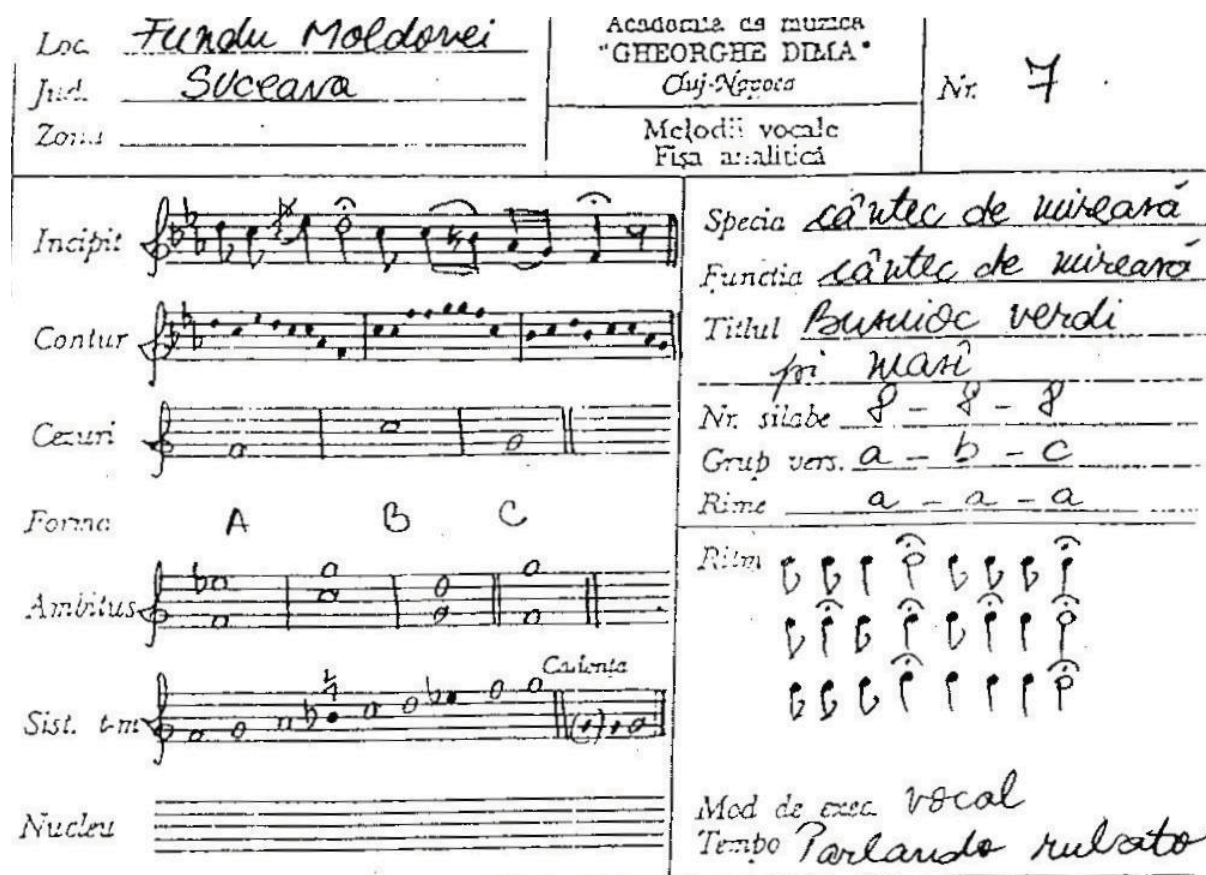 Loc. Fundu Moldovei
Jud. Suceava
Zona
Academia de muzica
"GHEORGHE DIMA"
Cluj-Napoca
Melodii vocale
Fişa analitică
Nr. 7
Incipit
Contur
Cezuri
Forma A B C
Ambitus
Sist. t-m
Cadența
Nucleu
Specia cântec de mireasă
Funcția cântec de mireasă
Titlul Busuioc verdi
pi masî
Nr. silabe 8 - 8 - 8
Grup vers. a - b - c
Rime a - a - a
Ritm
Mod de exec. vocal
Tempo Parlando rubato